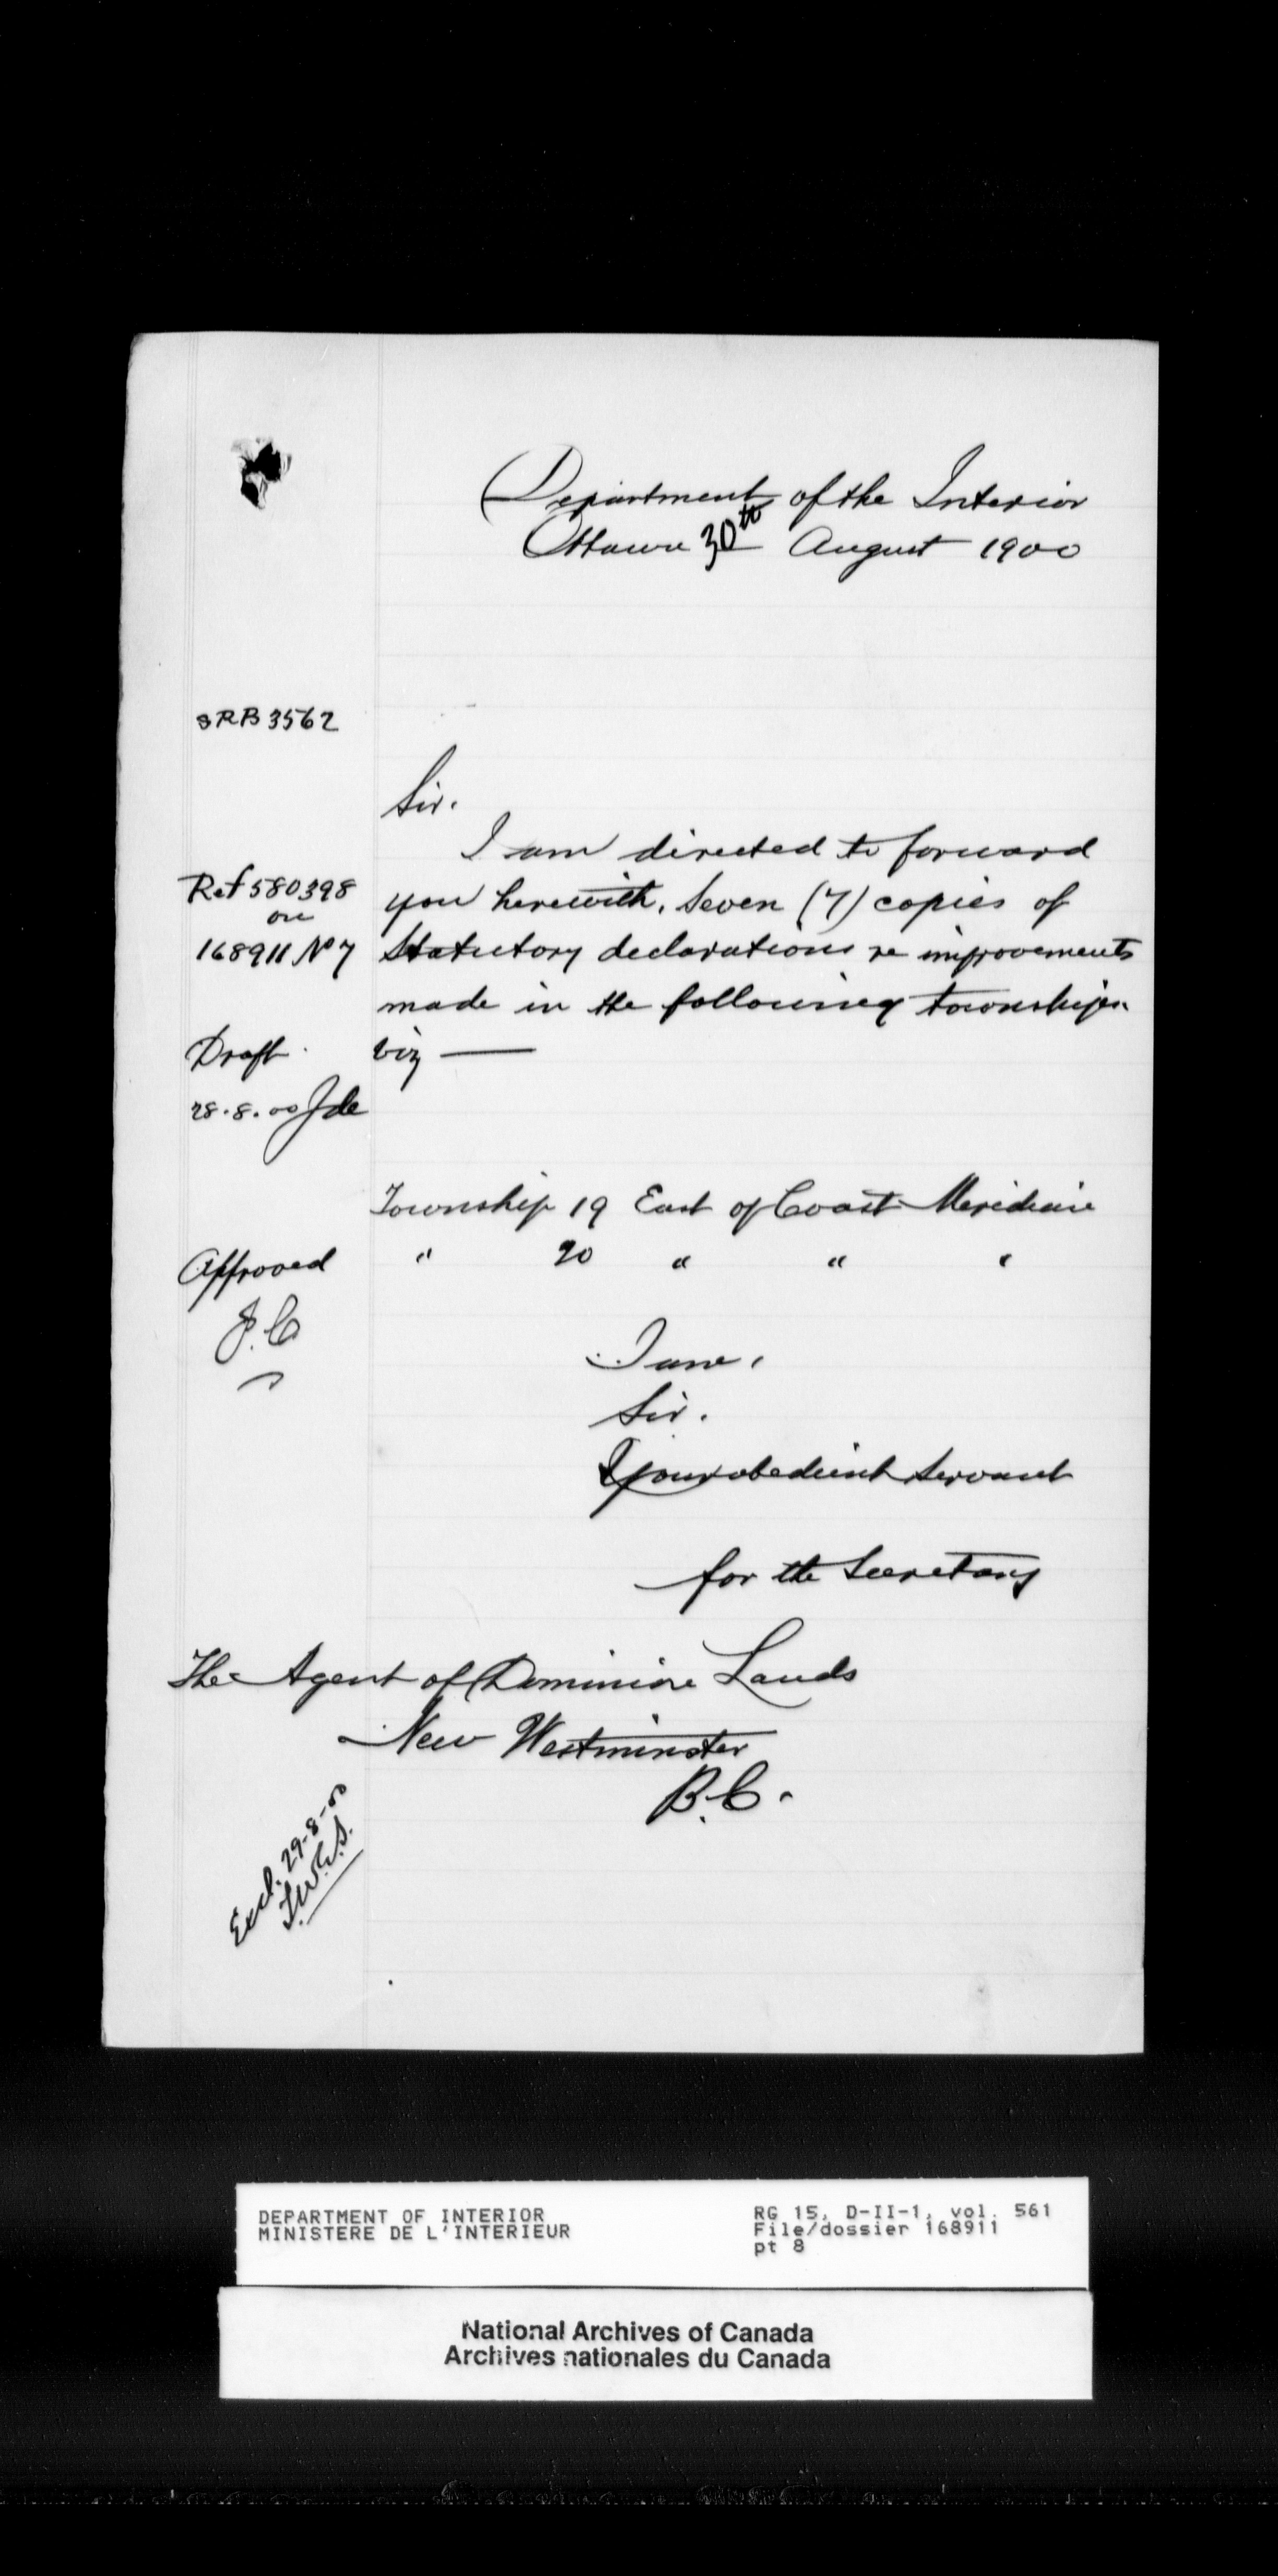 Department of the Interior
Ottawa 30th August 1900
SRB 3562
Sir.
I am directed to forward
Ref 580398
on
168911 No 7
you herewith, Seven (7) copies of
Statutory declarations re improvements
made in the following townships.
viz —
Draft.
28.8.00
Township 19 East of Coast Meridian
" 20 " " "
Approved
J.C
I am,
Sir.
Your obedient Servant
for the Secretary
The Agent of Dominion Lands
New Westminster
B.C.
29-8-00
DEPARTMENT OF INTERIOR
MINISTERE DE L'INTERIEUR
RG 15, D-II-1, vol. 561
File/dossier 168911
pt 8
National Archives of Canada
Archives nationales du Canada